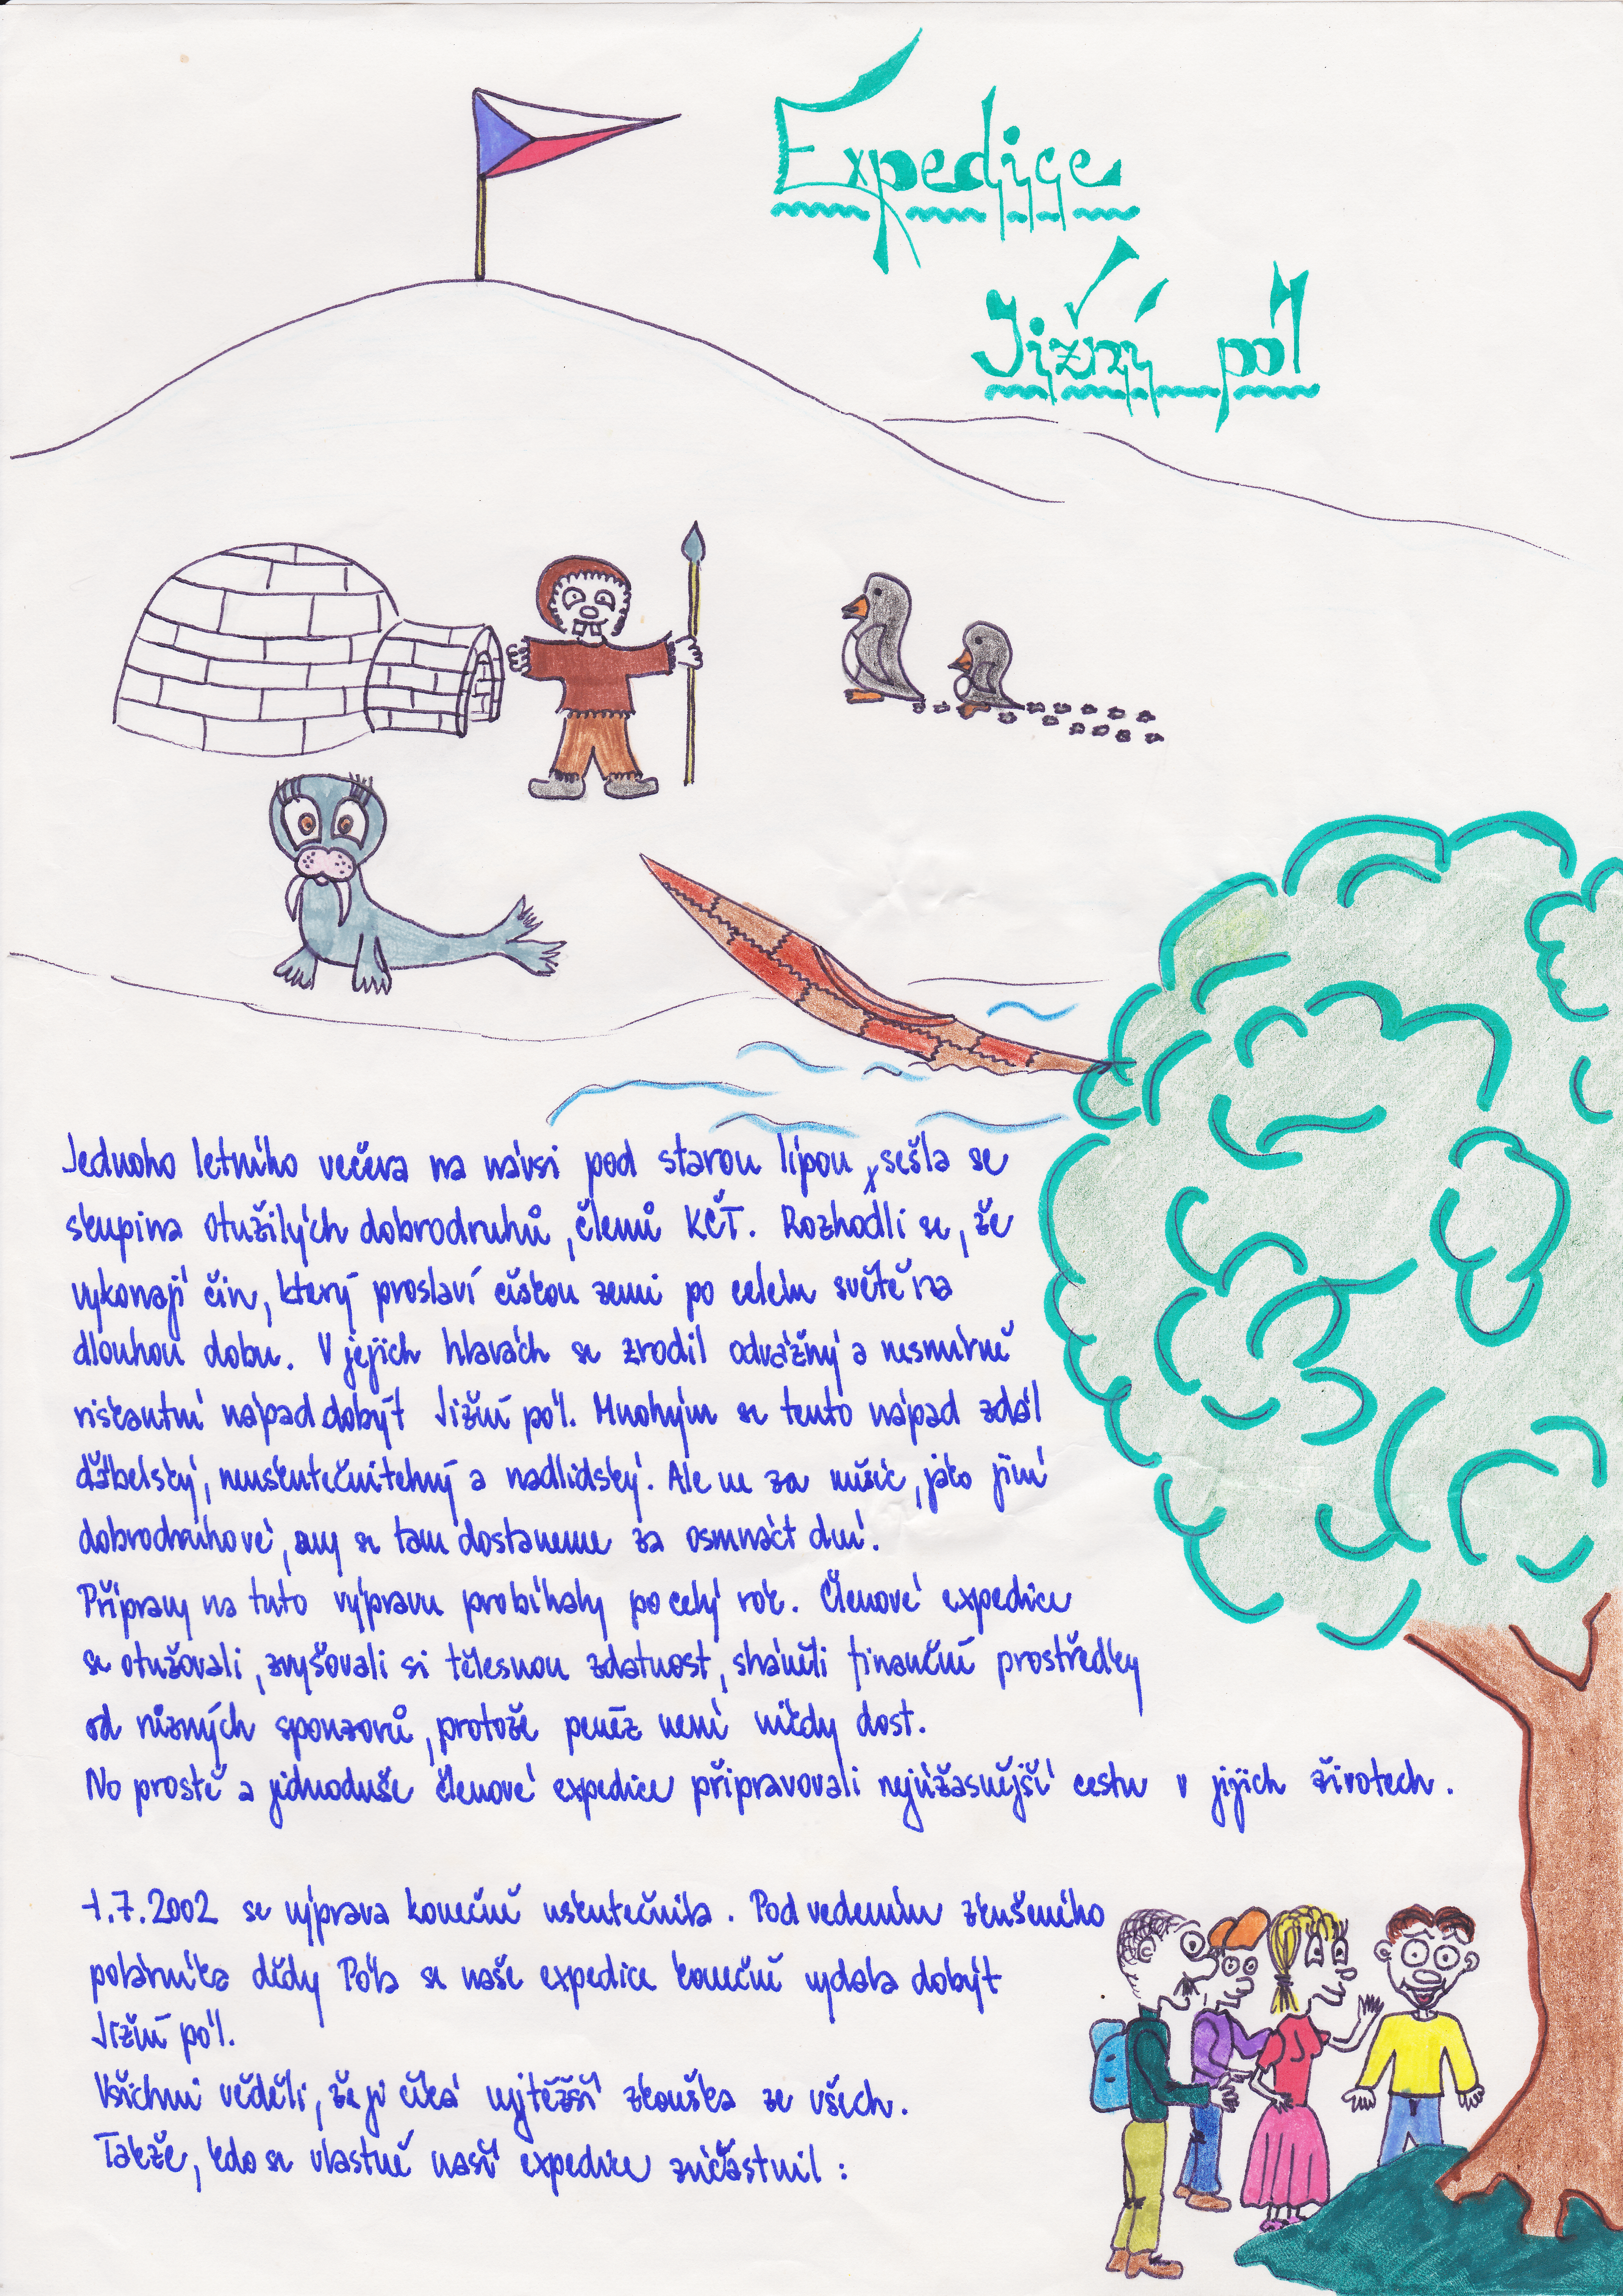 Expedice
Jižní pól
Jednoho letního večera na návsi pod starou lípou, sešla se
skupina otužilých dobrodruhů, členů KČT. Rozhodli se, že
vykonají čin, který proslaví českou zemi po celém světě na
dlouhou dobu. V jejich hlavách se zrodil odvážný a nesmírně
riskantní nápad dobýt Jižní pól. Mnohým se tento nápad zdál
ďábelský, neuskutečnitelný a nadlidský. Ale ne za měsíc, jako jiní
dobrodruhové, my se tam dostaneme za osmnáct dní.
Přípravy na tuto výpravu probíhaly po celý rok. Členové expedice
se otužovali, zvyšovali si tělesnou zdatnost, sháněli finanční prostředky
od různých sponzorů, protože peněz není nikdy dost.
No prostě a jednoduše členové expedice připravovali nejúžasnější cestu v jejich životech.
1.7.2002 se výprava konečně uskutečnila. Pod vedením zkušeného
polárníka dědy Póla se naše expedice konečně vydala dobýt
Jižní pól.
Všichni věděli, že je čeká nejtěžší zkouška ze všech.
Takže, kdo se vlastně naší expedice zúčastnil: